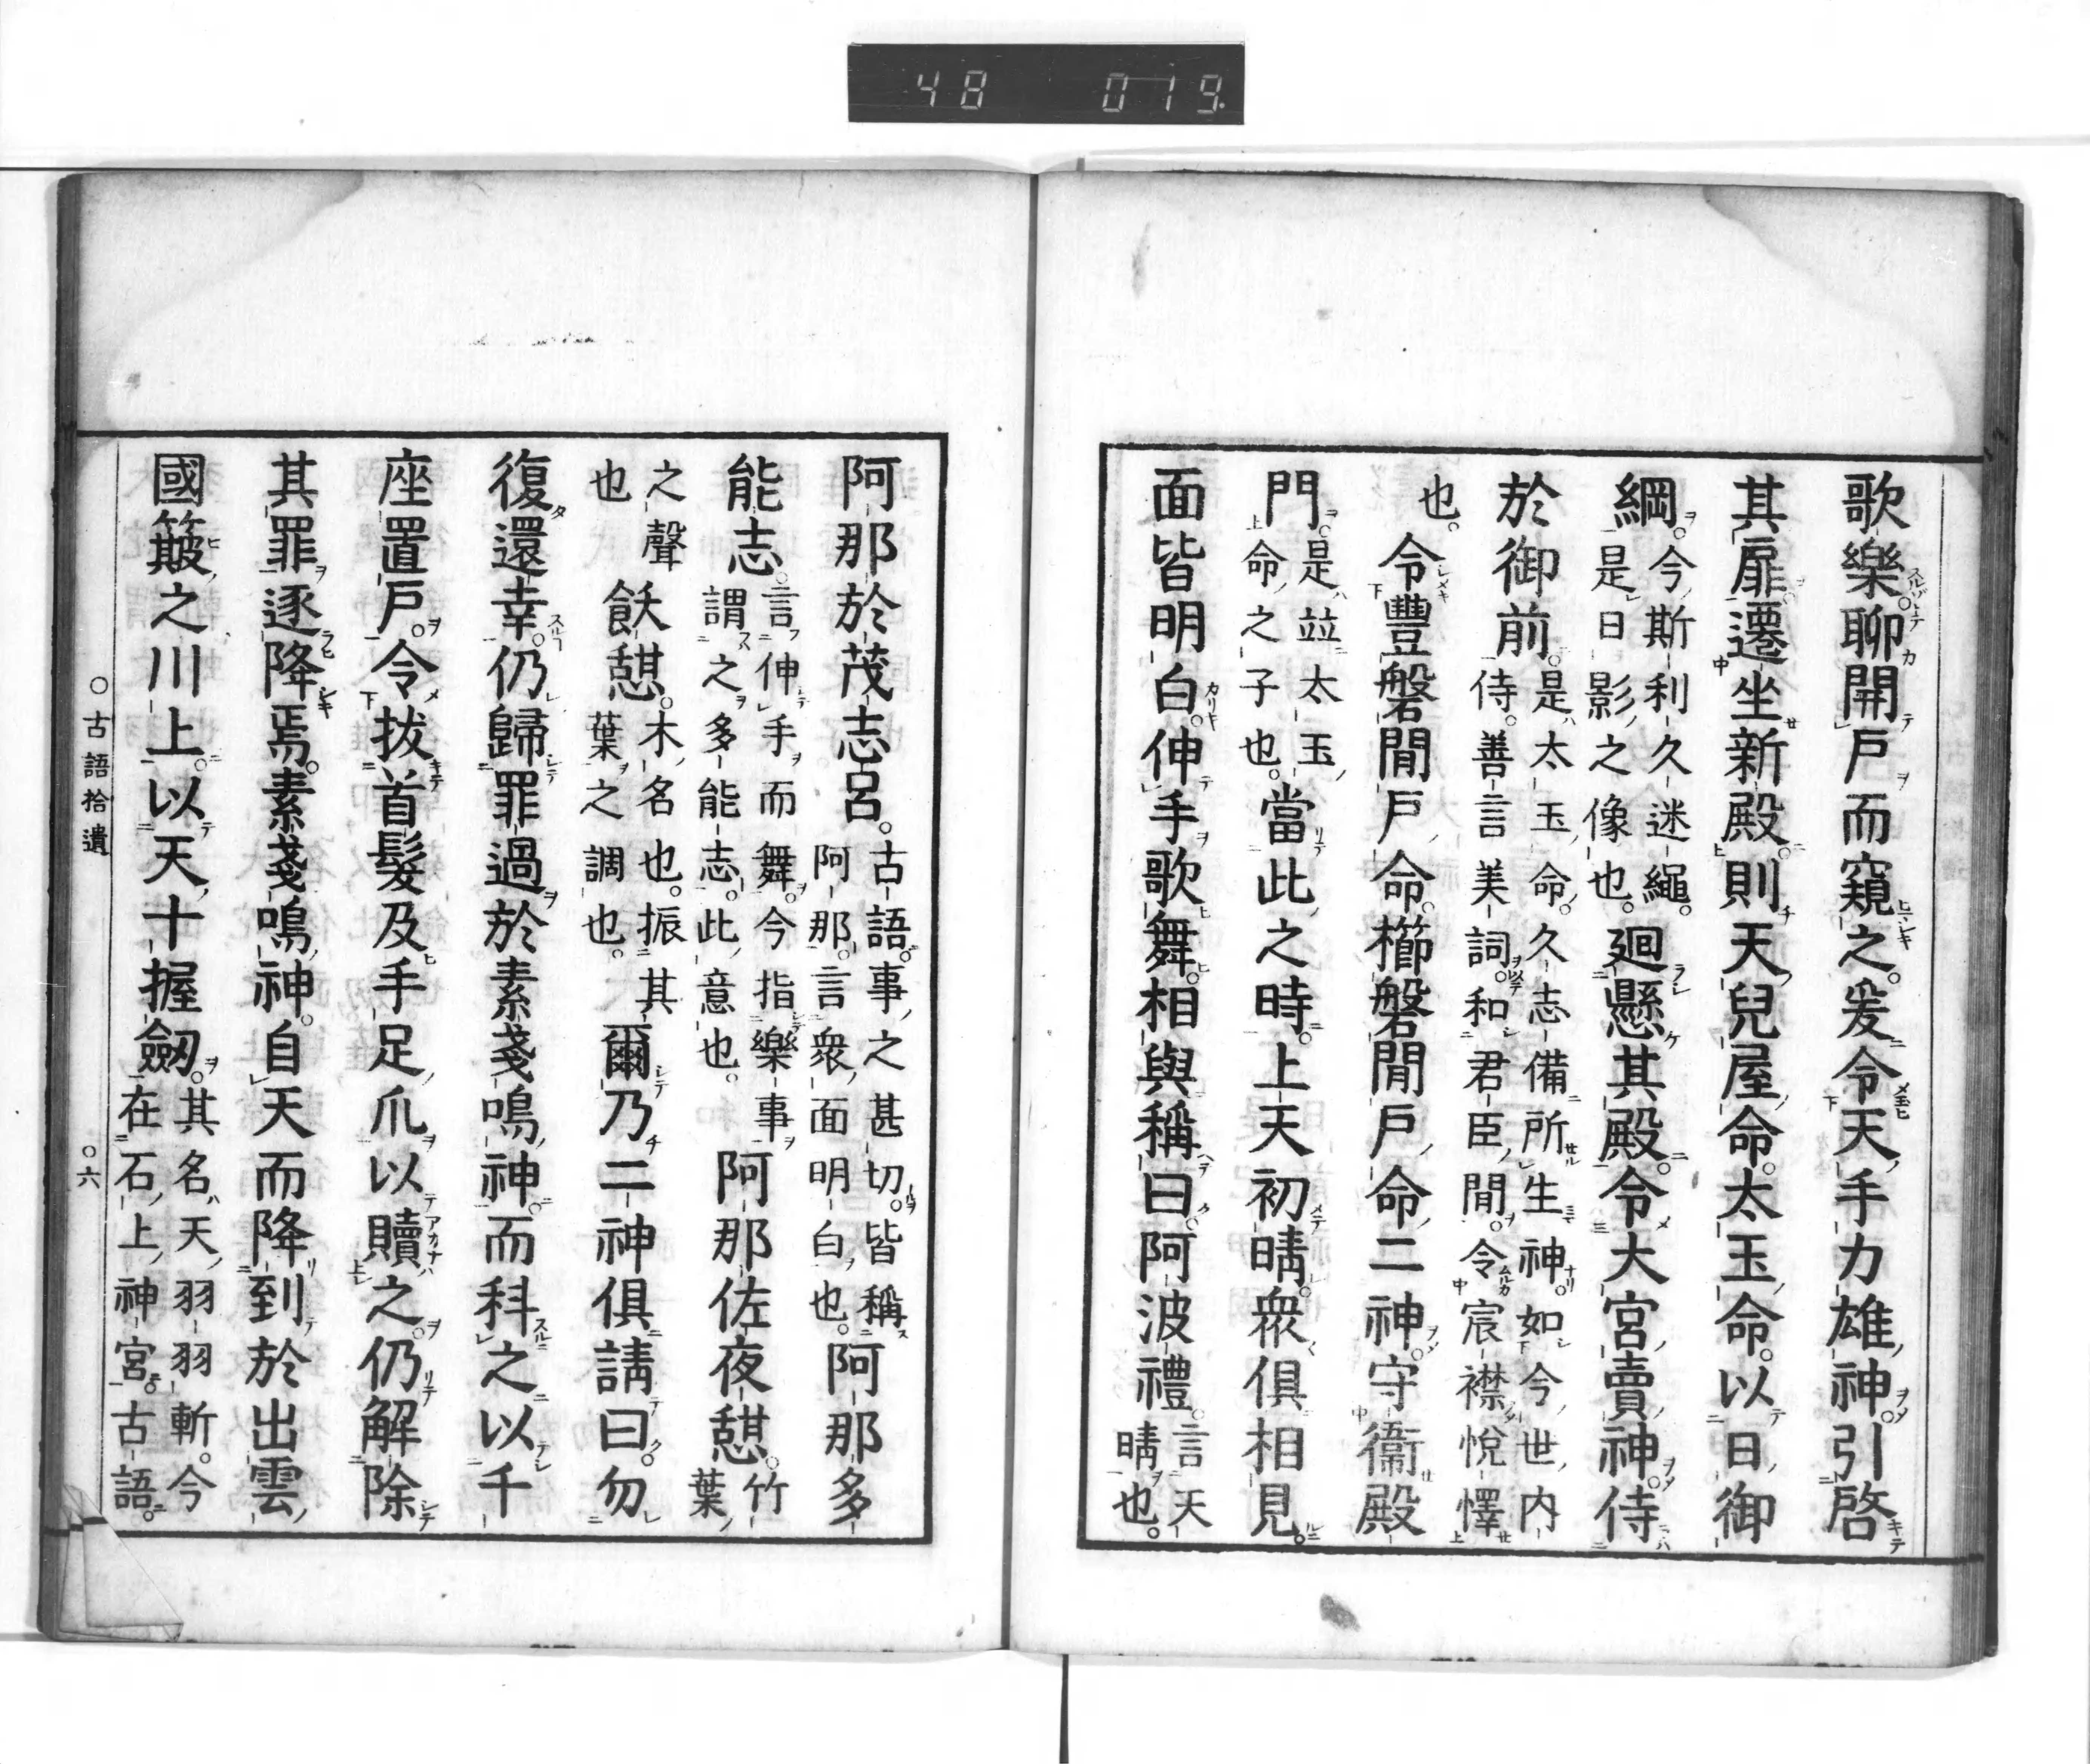 48 019
歌樂聊開戸而窺之爰令天手力雄神引啓
其扉遷坐新殿則天兒屋命太玉命以日御
綱今斯利久迷繩
是日影之像也廻懸其殿令大宮賣神侍
於御前是太玉命久志備所生神如今世内
侍善言美詞和君臣閒令宸襟悅懌
也令豐磐閒戸命櫛磐閒戸命二神守衞殿
門是竝太玉
命之子也當此之時上天初晴衆俱相見
面皆明白伸手歌舞相與稱曰阿波禮言天
晴也
阿那於茂志呂古語事之甚切皆稱
阿那言衆面明白也阿那多
能志言伸手而舞今指樂事
謂之多能志此意也阿那佐夜憩竹
葉
之聲
也飫憩木名也振其
葉之調也爾乃二神俱請曰勿
復還幸仍歸罪過於素戔鳴神而科之以千
座置戸令拔首髮及手足爪以贖之仍解除
其罪逐降焉素戔鳴神自天而降到於出雲
國簸之川上以天十握劔其名天羽羽斬今
在石上神宮古語
古語拾遺 六